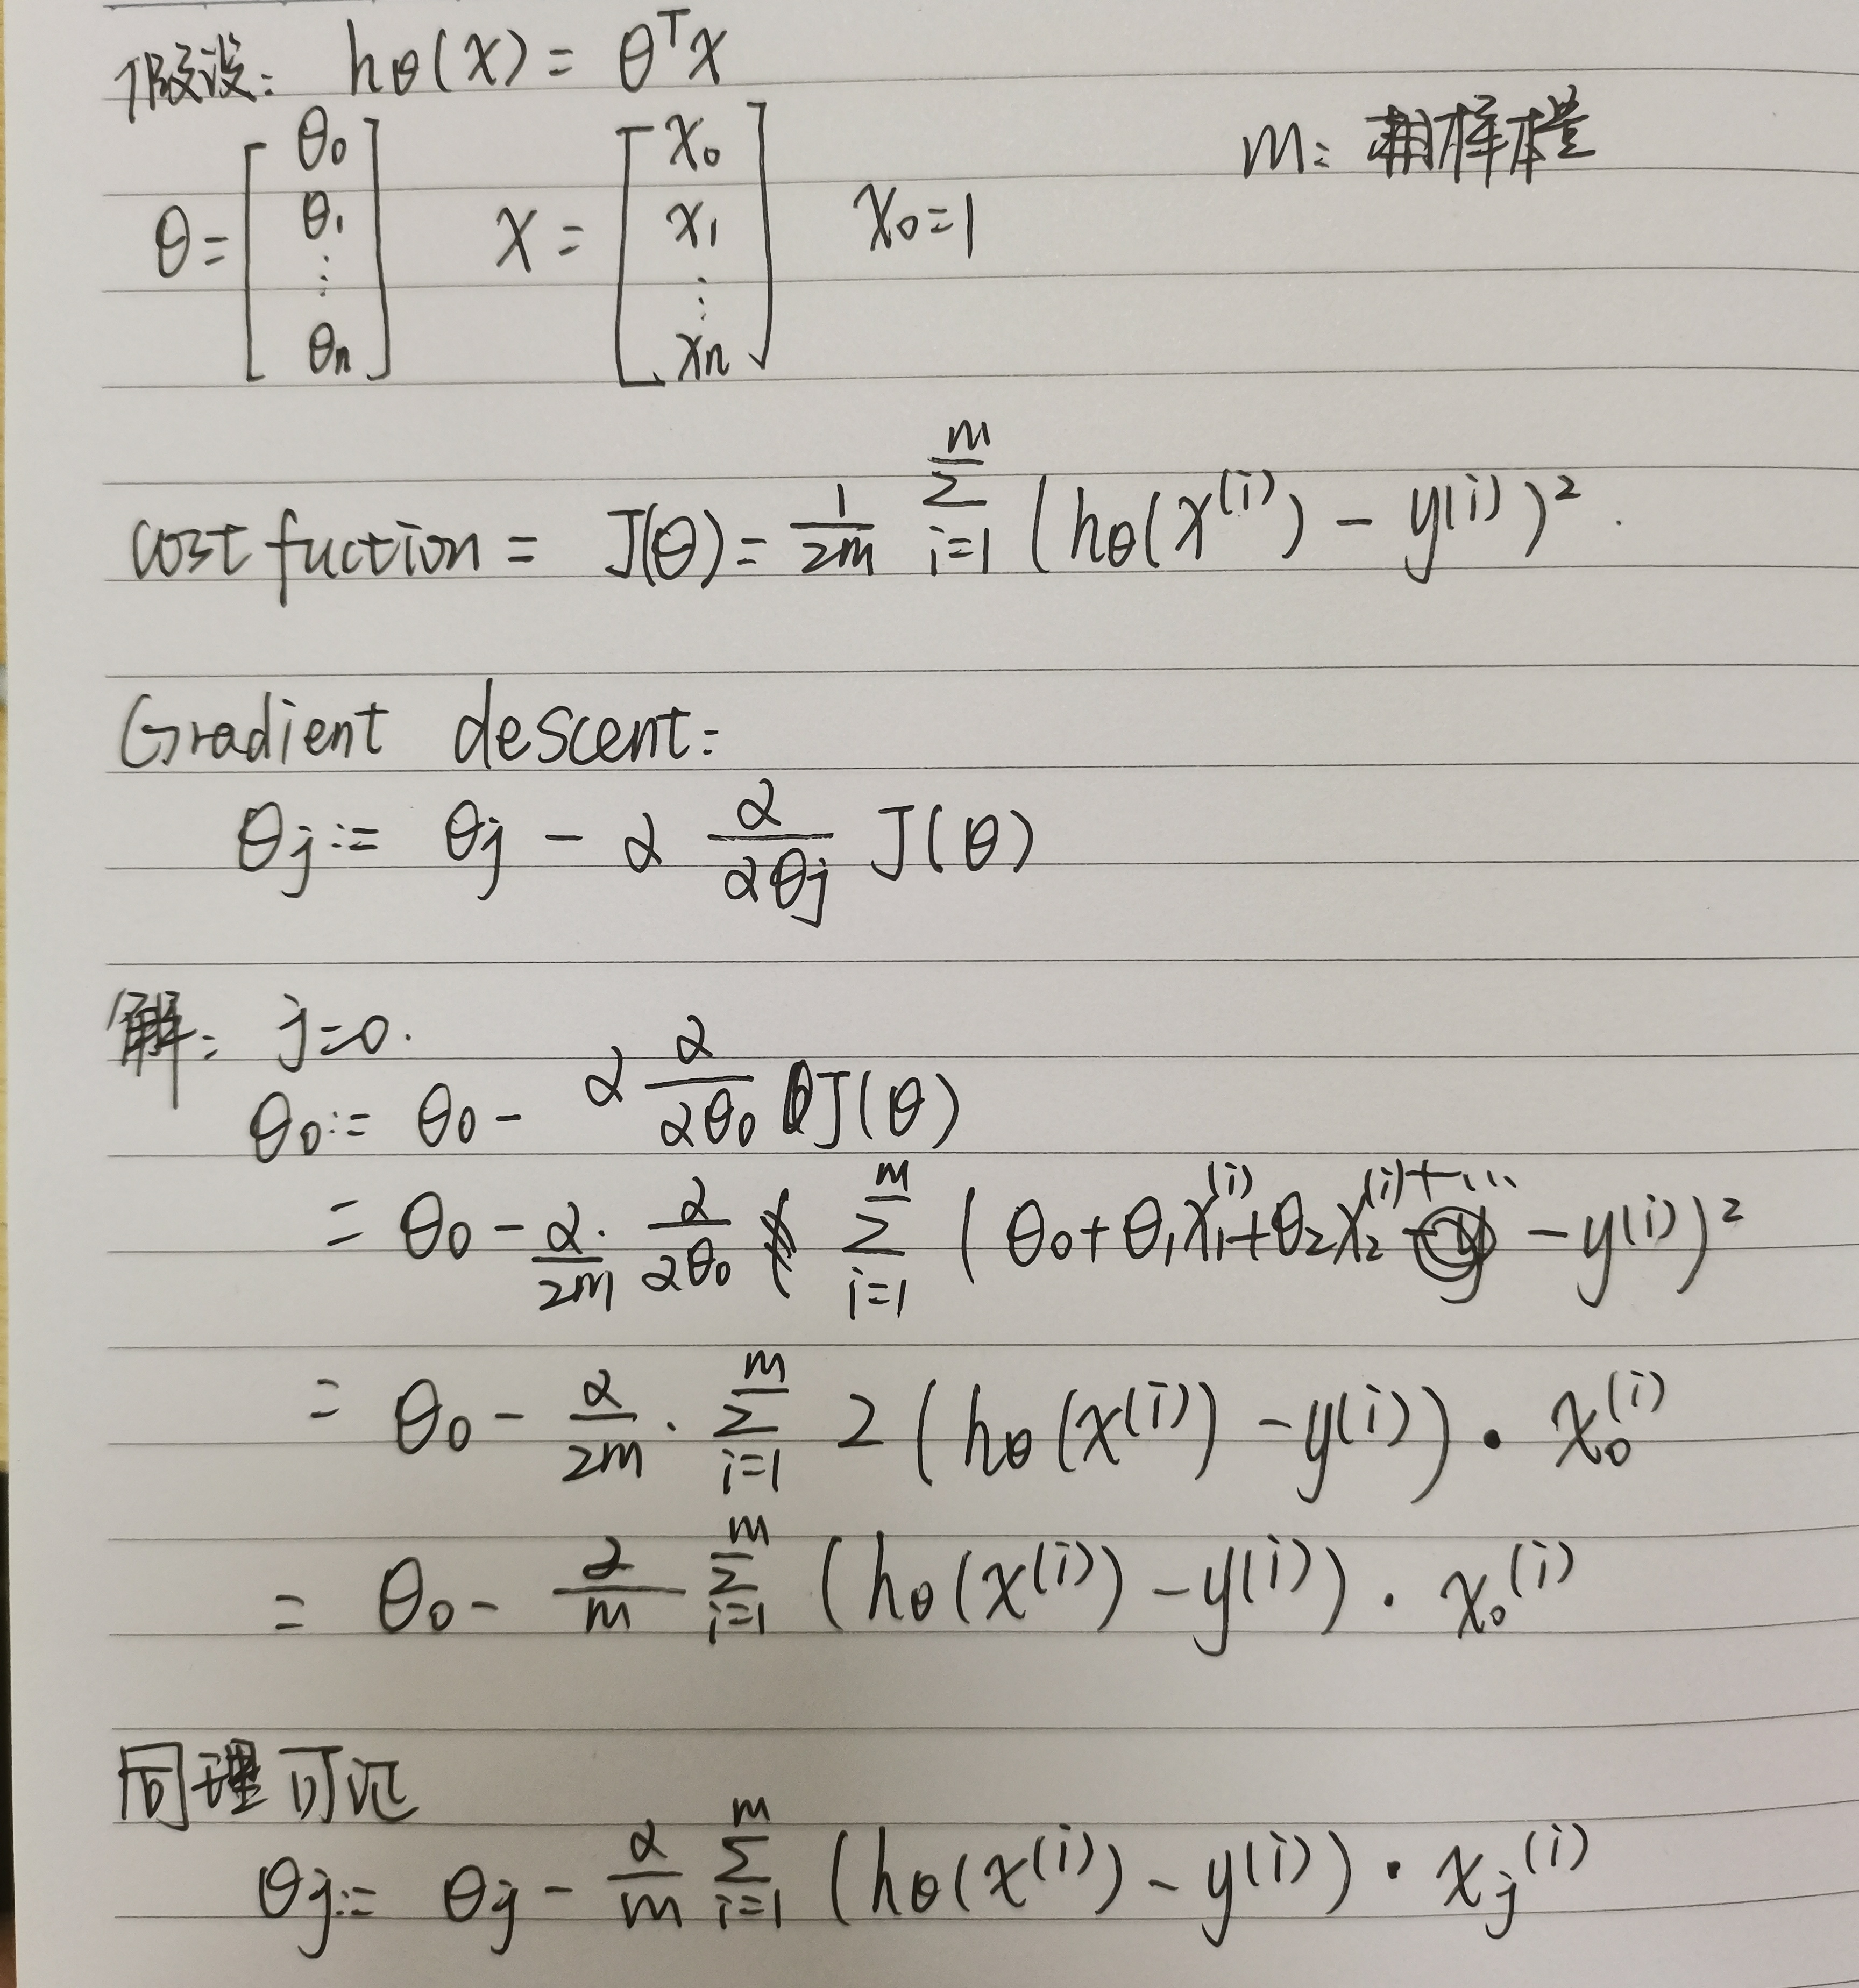 假设: hθ(x) = θᵀx
m: 样本量
θ = [θ₀ θ₁ ⋮ θₙ] x = [x₀ x₁ ⋮ xₙ] x₀=1
cost fuction = J(θ) = 1/2m ∑ᵢ₌₁ᵐ (hθ(x⁽ⁱ⁾) − y⁽ⁱ⁾)².
Gradient descent:
θj := θj − α ∂/∂θj J(θ)
解: j=0.
θ₀ := θ₀ − α ∂/∂θ₀ J(θ)
= θ₀ − α/2m · ∂/∂θ₀ ∑ᵢ₌₁ᵐ (θ₀+θ₁x₁⁽ⁱ⁾+θ₂x₂⁽ⁱ⁾+… − y⁽ⁱ⁾)²
= θ₀ − α/2m · ∑ᵢ₌₁ᵐ 2(hθ(x⁽ⁱ⁾) − y⁽ⁱ⁾) · x₀⁽ⁱ⁾
= θ₀ − α/m ∑ᵢ₌₁ᵐ (hθ(x⁽ⁱ⁾) − y⁽ⁱ⁾) · x₀⁽ⁱ⁾
同理可证
θj := θj − α/m ∑ᵢ₌₁ᵐ (hθ(x⁽ⁱ⁾) − y⁽ⁱ⁾) · xj⁽ⁱ⁾